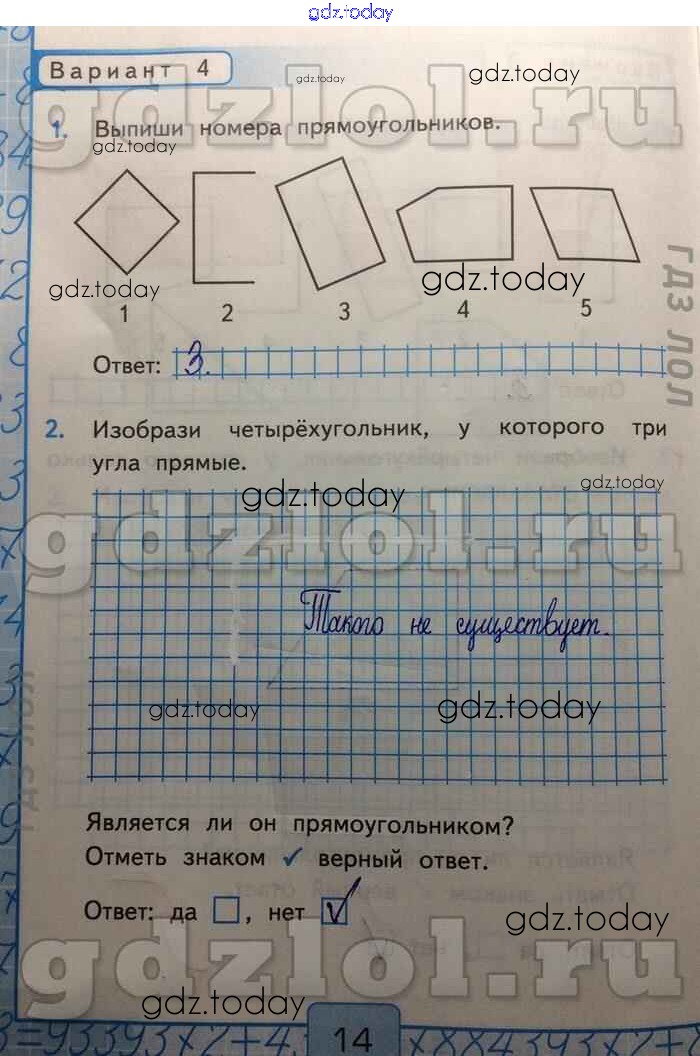 gdz.today
Вариант 4
gdz.today
gdz.today
gdzlol.ru
1. Выпиши номера прямоугольников.
gdz.today
gdz.today
gdz.today
1 2 3 4 5
ГДЗ ЛОЛ
Ответ: 3.
2. Изобрази четырёхугольник, у которого три
угла прямые.
gdz.today
gdz.today
gdzlol.ru
Такого не существует.
gdz.today
gdz.today
ГДЗ ЛОЛ
Является ли он прямоугольником?
Отметь знаком ✓ верный ответ.
Ответ: да □, нет ☑
gdz.today
gdzlol.ru
gdz.today
14